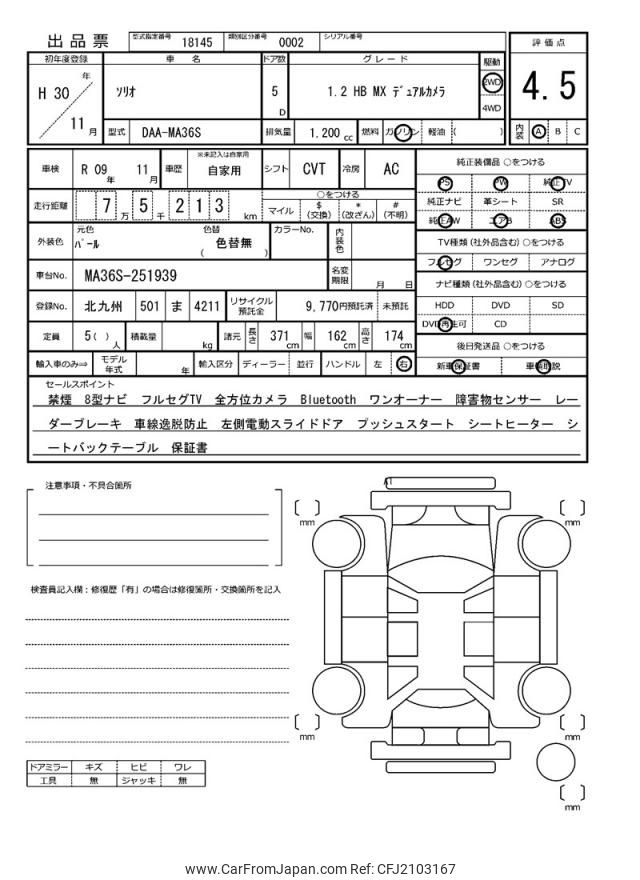 出品票 型式指定番号 18145 類別区分番号 0002 シリアル番号
評価点
4.5
内装 Ⓐ B C
初年度登録 車名 ドア数 グレード 駆動
H 30 年 11 月 ソリオ 5 D 1.2 HB MX ﾃﾞｭｱﾙｶﾒﾗ 2WD 4WD
型式 DAA-MA36S 排気量 1.200 cc 燃料 ガソリン 軽油 ( )
車検 R 09 年 11 月 車歴 ※未記入は自家用 自家用 シフト CVT 冷房 AC
走行距離 7 万 5 千 2 1 3 km
○をつける
マイル $ (交換) * (改ざん) # (不明)
外装色 元色 パール 色替 ( 色替無 ) カラーNo. 内装色
車台No. MA36S-251939 名変期限 月 日
登録No. 北九州 501 ま 4211 リサイクル預託金 9,770円預託済 未預託
定員 5( ) 人 積載量 kg 諸元 長さ 371 cm 幅 162 cm 高さ 174 cm
輸入車のみ⇒ モデル年式 年 輸入区分 ディーラー 並行 ハンドル 左 右
純正装備品 ○をつける
PS PW 純正TV
純正ナビ 革シート SR
純正AW エアB ABS
TV種類 (社外品含む) ○をつける
フルセグ ワンセグ アナログ
ナビ種類 (社外品含む) ○をつける
HDD DVD SD
DVD再生可 CD
後日発送品 ○をつける
新車保証書 車輌取説
セールスポイント
禁煙 8型ナビ フルセグTV 全方位カメラ Bluetooth ワンオーナー 障害物センサー レー
ダーブレーキ 車線逸脱防止 左側電動スライドドア プッシュスタート シートヒーター シ
ートバックテーブル 保証書
注意事項・不具合箇所
検査員記入欄：修復歴「有」の場合は修復箇所・交換箇所を記入
A1
〔 〕 mm
〔 〕 mm
〔 〕 mm
〔 〕 mm
〔 〕 mm
ドアミラー キズ ヒビ ワレ
工具 無 ジャッキ 無
www.CarFromJapan.com Ref: CFJ2103167